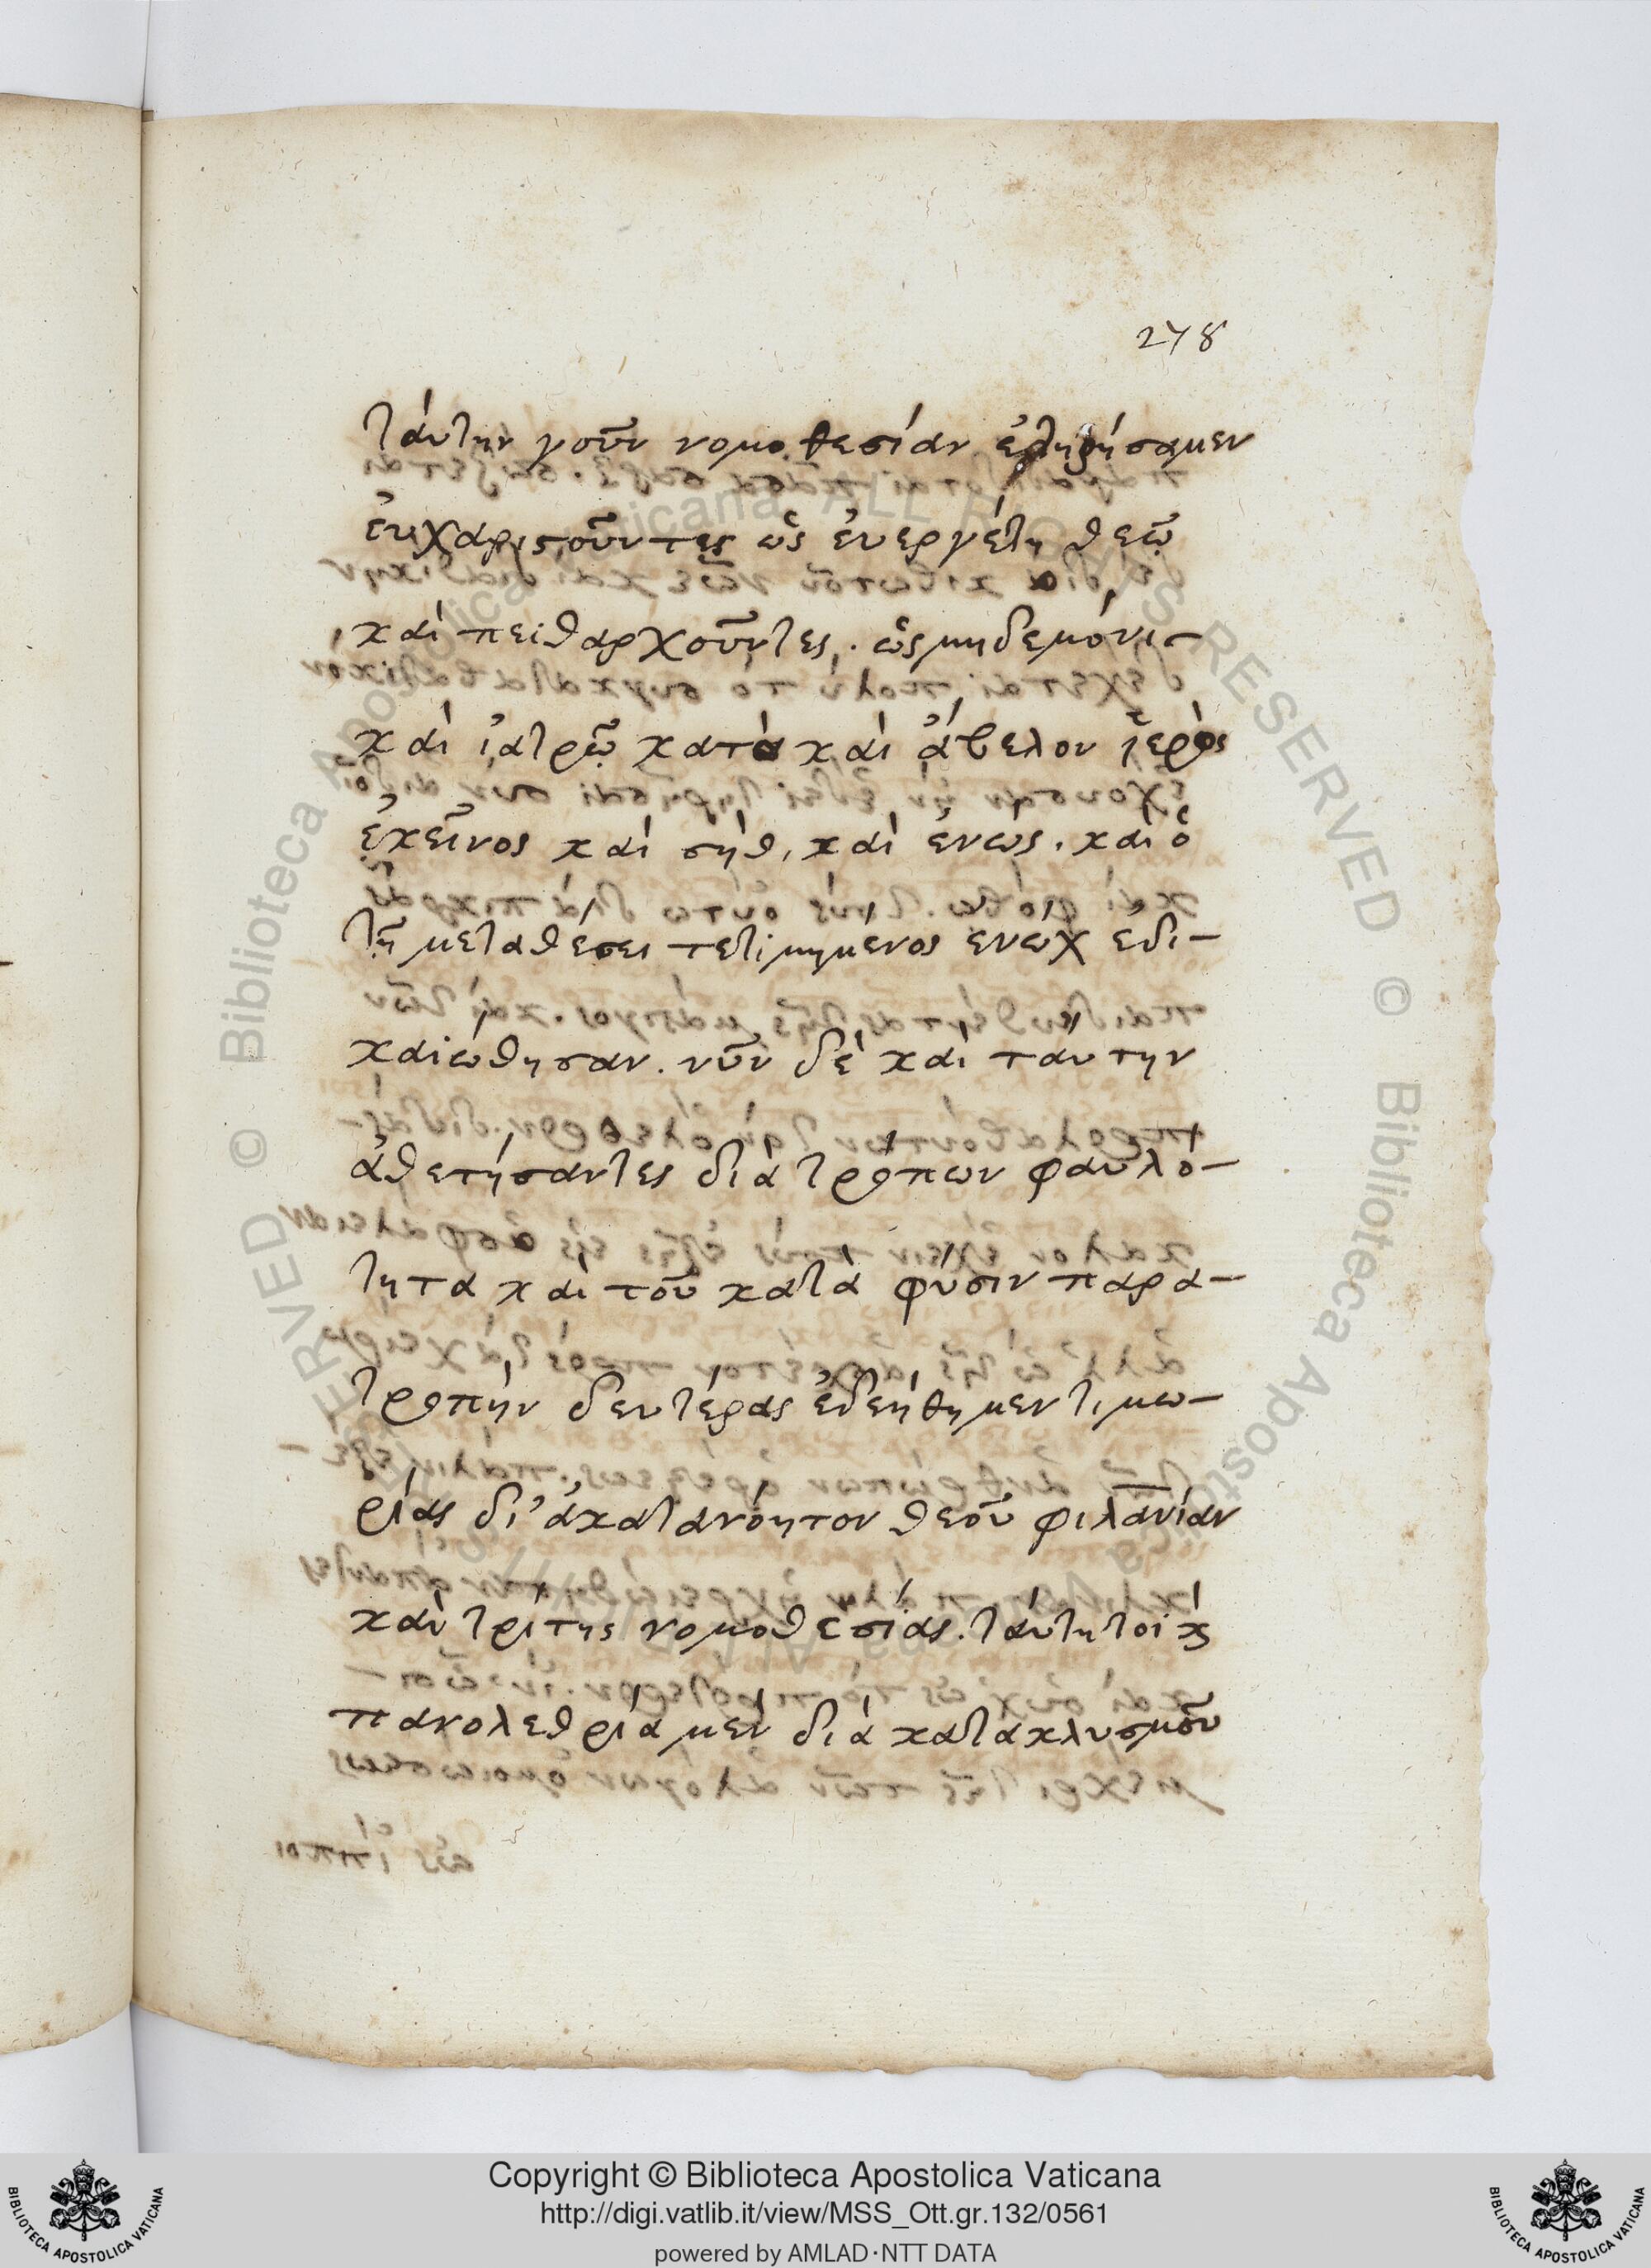 278
ταύτην γοῦν νομοθεσίαν ἐτηρήσαμεν
ἐυχαριστοῦντες ὡς ἐυεργέτη θεῷ
καὶ πειθαρχοῦντες. ὡς κηδεμόνι
καὶ ἰατρῷ κατὰ καὶ ἄβελον ἱερὸς
ἐκεῖνος καὶ σὴθ, καὶ ἐνως. καὶ ὁ
τῇ μεταθέσει τετιμημένος ενωχ ἐδι-
καιώθησαν. νῦν δὲ καὶ ταύτην
ἀθετήσαντες διὰ τρόπων φαυλό-
τητα καὶ τοῦ κατὰ φύσιν παρα-
τροπὴν δευτέρας ἐδεήθημεν τιμω-
ρίας δι' ἀκατανόητον θεοῦ φιλανίαν
καὶ τρίτης νομοθεσίας. ταύτη τοι κ
πανολεθρία μὲν διὰ κατακλυσμοῦ
Copyright © Biblioteca Apostolica Vaticana
http://digi.vatlib.it/view/MSS_Ott.gr.132/0561
powered by AMLAD·NTT DATA
BIBLIOTECA APOSTOLICA VATICANA
BIBLIOTECA APOSTOLICA VATICANA